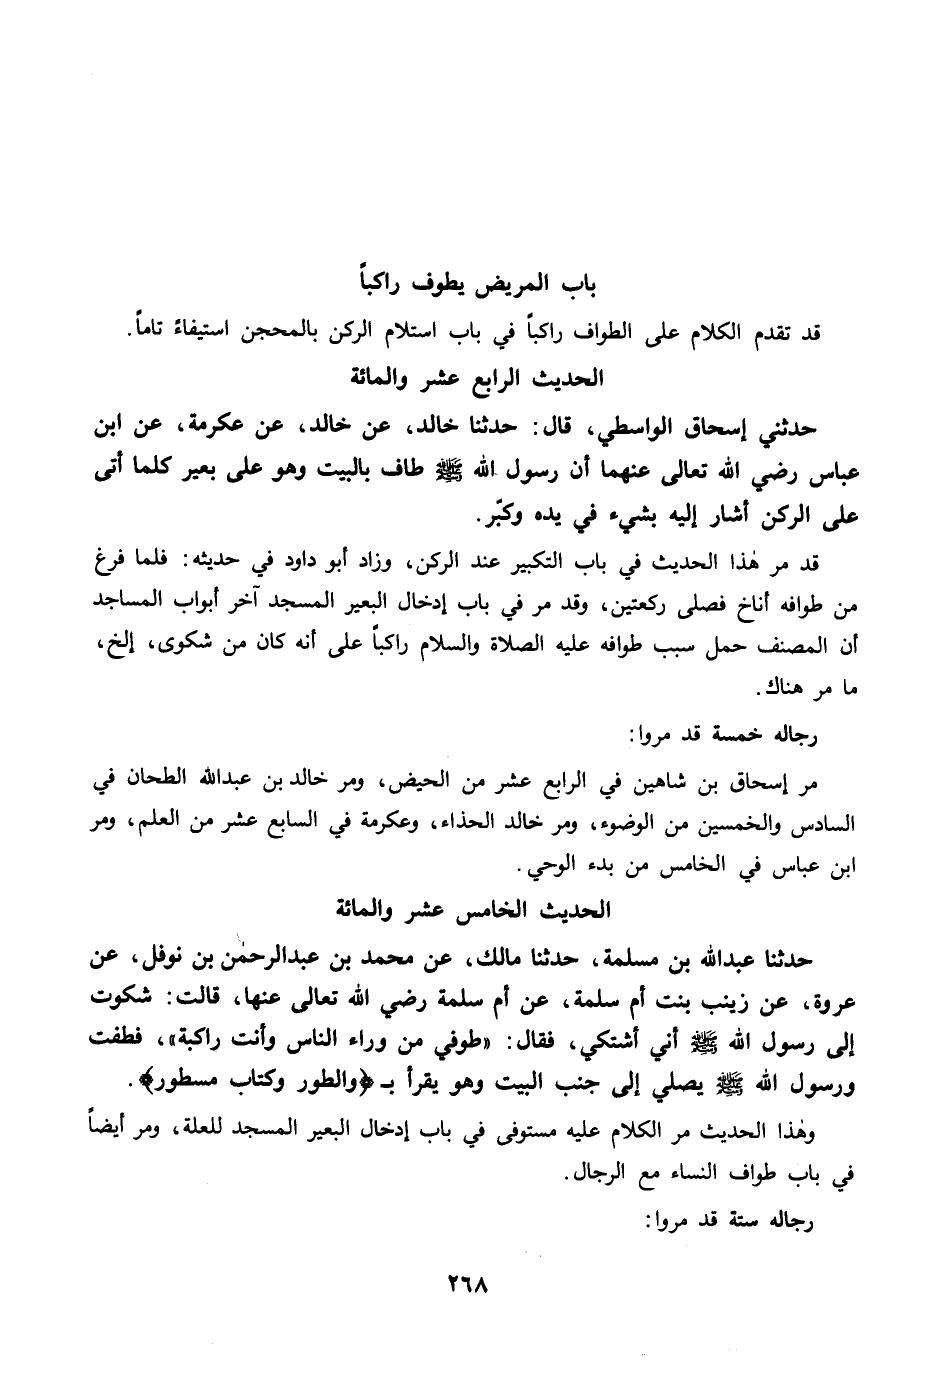 باب المريض يطوف راكباً
قد تقدم الكلام على الطواف راكباً في باب استلام الركن بالمحجن استيفاءً تاماً.
الحديث الرابع عشر والمائة
حدثني إسحاق الواسطي، قال: حدثنا خالد، عن خالد، عن عكرمة، عن ابن
عباس رضي الله تعالى عنهما أن رسول الله ﷺ طاف بالبيت وهو على بعير كلما أتى
على الركن أشار إليه بشيء في يده وكبّر.
قد مر هٰذا الحديث في باب التكبير عند الركن، وزاد أبو داود في حديثه: فلما فرغ
من طوافه أناخ فصلى ركعتين، وقد مر في باب إدخال البعير المسجد آخر أبواب المساجد
أن المصنف حمل سبب طوافه عليه الصلاة والسلام راكباً على أنه كان من شكوى، إلخ،
ما مر هناك.
رجاله خمسة قد مروا:
مر إسحاق بن شاهين في الرابع عشر من الحيض، ومر خالد بن عبدالله الطحان في
السادس والخمسين من الوضوء، ومر خالد الحذاء، وعكرمة في السابع عشر من العلم، ومر
ابن عباس في الخامس من بدء الوحي.
الحديث الخامس عشر والمائة
حدثنا عبدالله بن مسلمة، حدثنا مالك، عن محمد بن عبدالرحمٰن بن نوفل، عن
عروة، عن زينب بنت أم سلمة، عن أم سلمة رضي الله تعالى عنها، قالت: شكوت
إلى رسول الله ﷺ أني أشتكي، فقال: «طوفي من وراء الناس وأنت راكبة»، فطفت
ورسول الله ﷺ يصلي إلى جنب البيت وهو يقرأ بـ ﴿والطور وكتاب مسطور﴾.
وهٰذا الحديث مر الكلام عليه مستوفى في باب إدخال البعير المسجد للعلة، ومر أيضاً
في باب طواف النساء مع الرجال.
رجاله ستة قد مروا:
٢٦٨